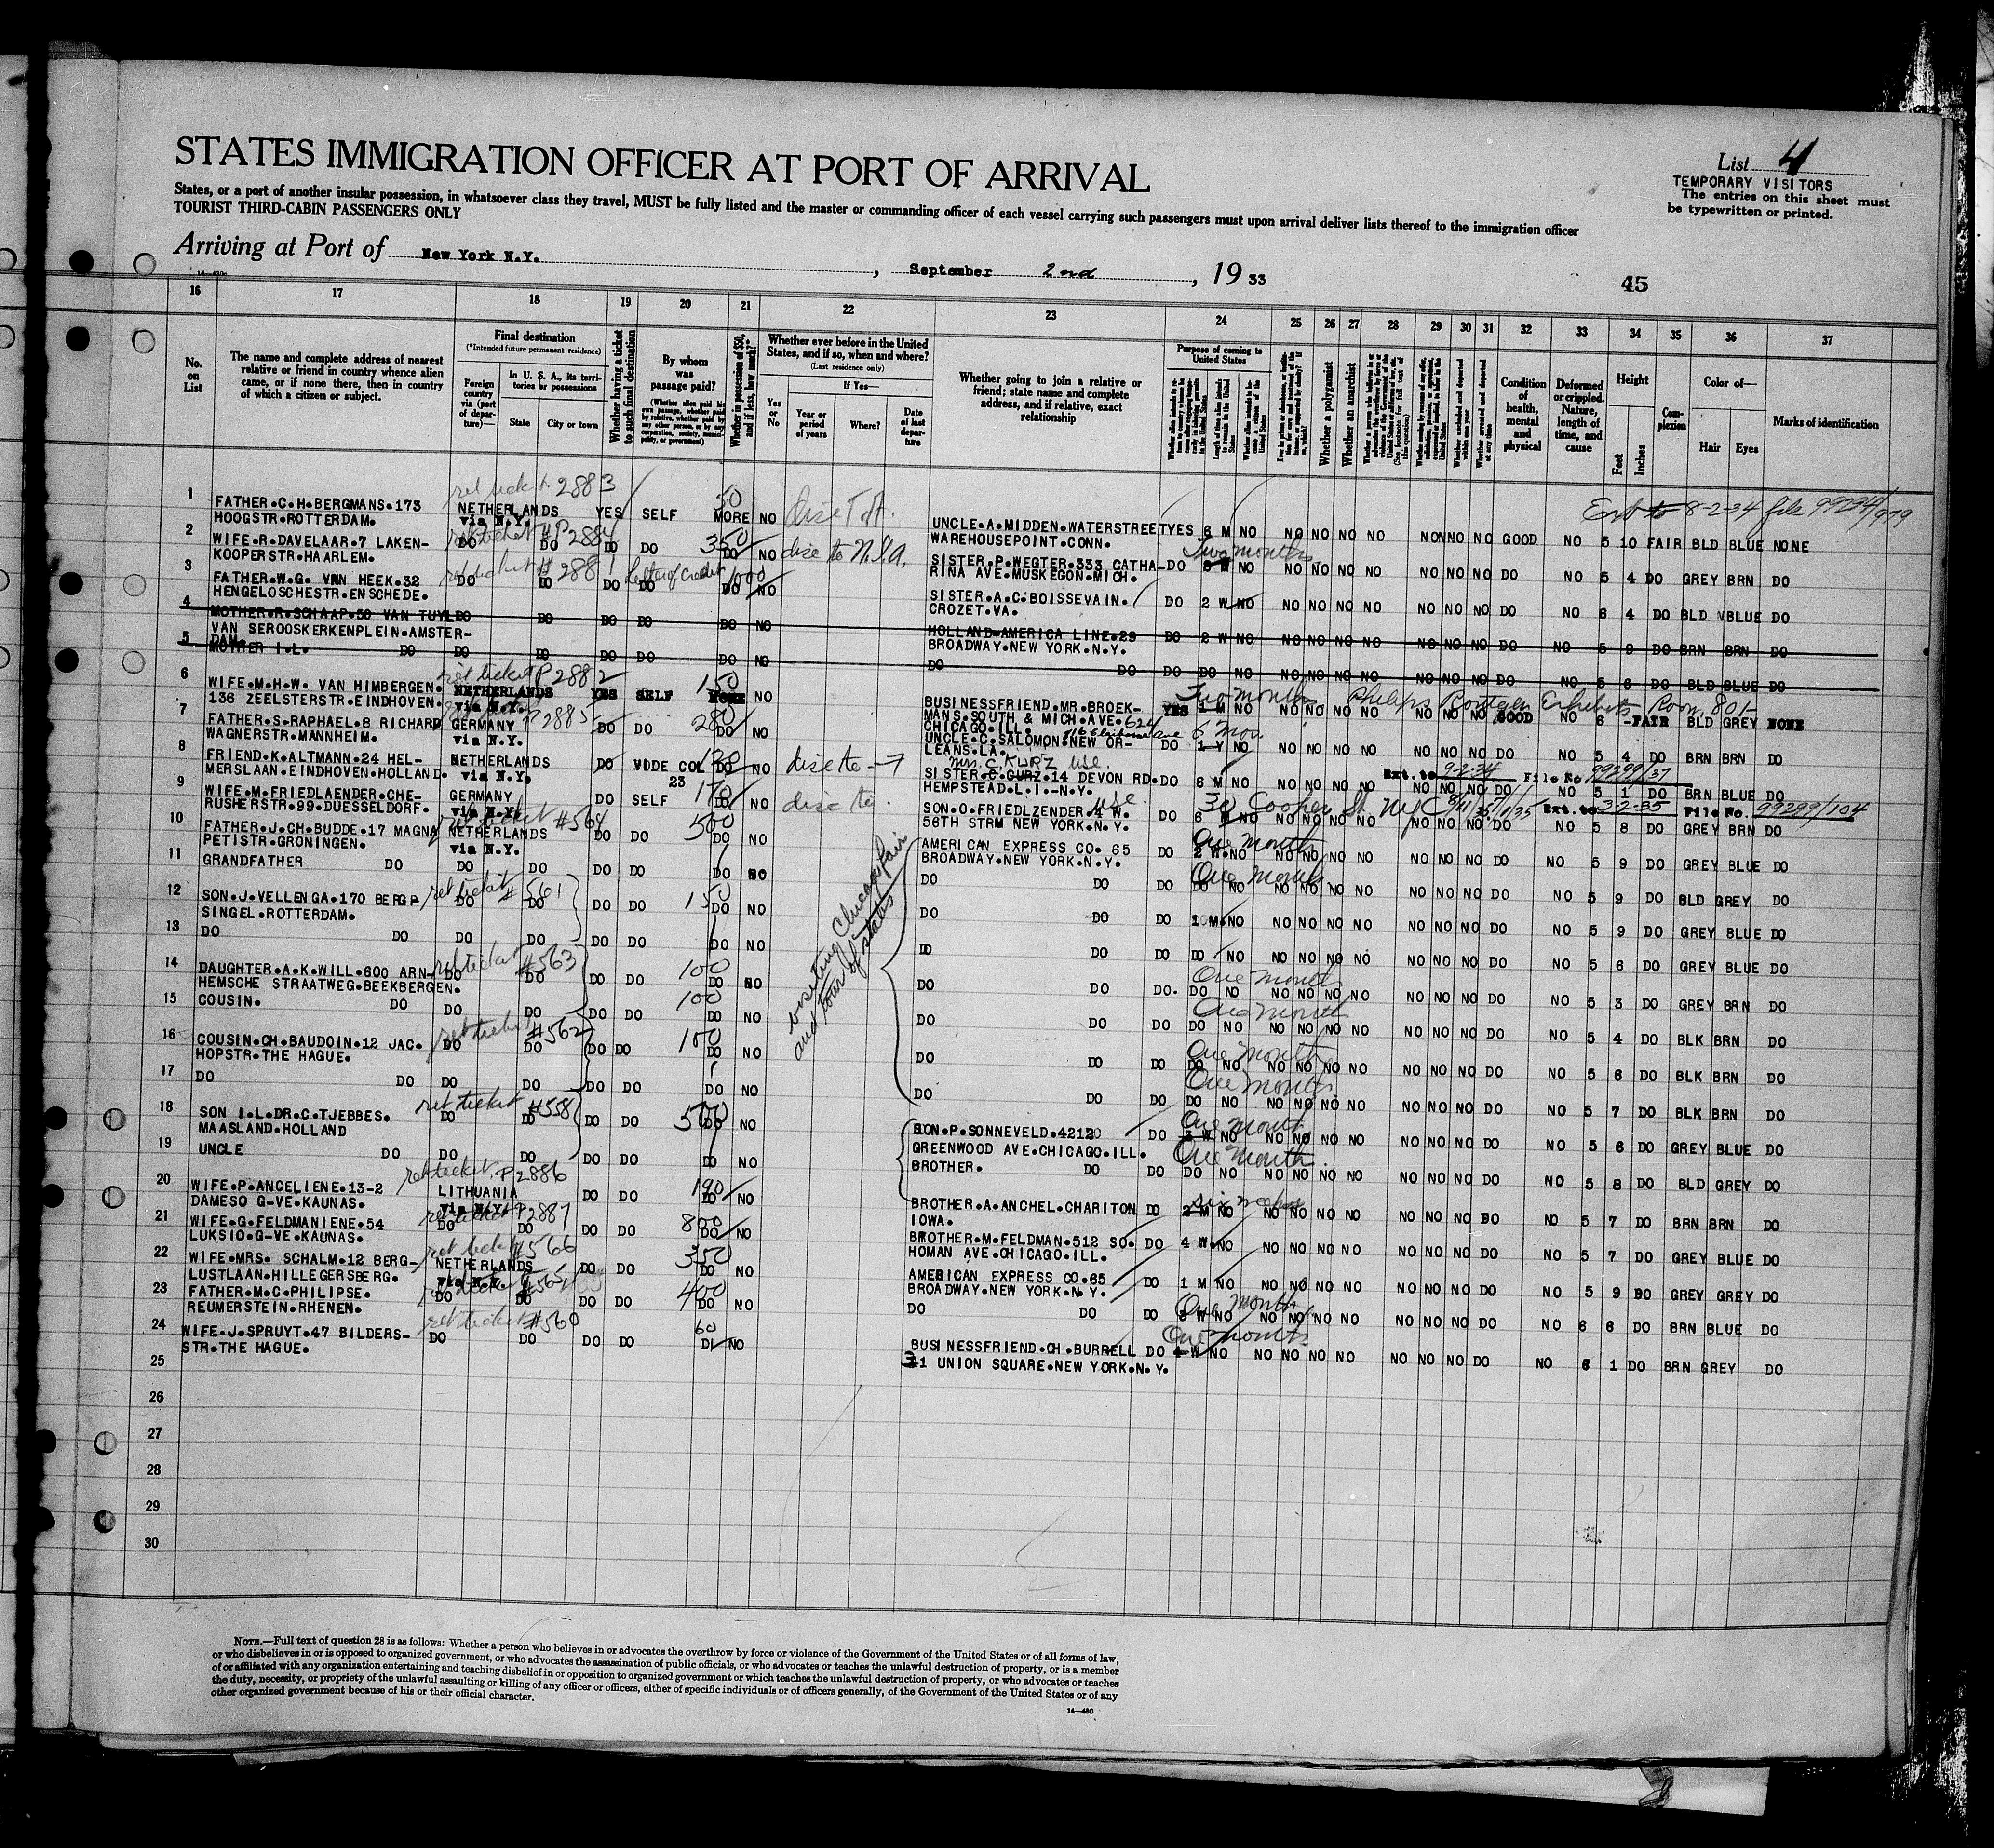 STATES IMMIGRATION OFFICER AT PORT OF ARRIVAL
List 4
TEMPORARY VISITORS
The entries on this sheet must
be typewritten or printed.
States, or a port of another insular possession, in whatsoever class they travel, MUST be fully listed and the master or commanding officer of each vessel carrying such passengers must upon arrival deliver lists thereof to the immigration officer
TOURIST THIRD-CABIN PASSENGERS ONLY
Arriving at Port of New York N.Y., September 2nd, 1933
45
16 17 18 19 20 21 22 23 24 25 26 27 28 29 30 31 32 33 34 35 36 37
No. on List
The name and complete address of nearest relative or friend in country whence alien came, or if none there, then in country of which a citizen or subject.
Final destination
(*Intended future permanent residence)
Foreign country via (port of departure)—
In U. S. A., its territories or possessions
State
City or town
Whether having a ticket to such final destination
By whom was passage paid?
Whether in possession of $50, and if less, how much?
Whether ever before in the United States, and if so, when and where?
(Last residence only)
Yes or No
If Yes—
Year or period of years
Where?
Date of last departure
Whether going to join a relative or friend; state name and complete address, and if relative, exact relationship
Purpose of coming to United States
Whether a polygamist
Whether an anarchist
Condition of health, mental and physical
Deformed or crippled. Nature, length of time, and cause
Height
Feet
Inches
Complexion
Color of—
Hair
Eyes
Marks of identification
ret ticket 2883
Ext to 8-2-34 file 99294/979
1 FATHER.C.H.BERGMANS.173 HOOGSTR.ROTTERDAM. NETHERLANDS via N.Y. YES SELF 50 MORE NO UNCLE.A.MIDDEN.WATERSTREET WAREHOUSEPOINT.CONN. YES 6 M NO NO NO NO NO NO NO NO GOOD NO 5 10 FAIR BLD BLUE NONE
ret ticket #P2884
2 WIFE.R.DAVELAAR.7 LAKEN-KOOPERSTR.HAARLEM. DO DO DO DO 350 DO NO SISTER.P.WEGTER.333 CATHARINA AVE.MUSKEGON.MICH. DO Two months NO NO NO NO NO NO NO NO DO NO 5 4 DO GREY BRN DO
ret ticket # 2881 Letter of Credit 1000
3 FATHER.W.G. VAN HEEK.32 HENGELOSCHESTR.ENSCHEDE. DO DO DO DO DO NO SISTER.A.C.BOISSEVAIN. CROZET.VA. DO 2 W NO NO NO NO NO NO NO NO DO NO 6 4 DO BLD BLUE DO
4 MOTHER.R.SCHAAP.50 VAN TUYL VAN SEROOSKERKENPLEIN.AMSTER-DAM. DO DO DO DO DO NO HOLLAND-AMERICA LINE.29 BROADWAY.NEW YORK.N.Y. DO 2 W NO NO NO NO NO NO NO NO DO NO 5 9 DO BRN BRN DO
5 MOTHER I.L. DO DO DO DO DO DO NO DO DO DO DO NO NO NO NO NO NO NO NO DO NO 5 6 DO BLD BLUE DO
ret ticket P2882
6 WIFE.M.H.W. VAN HIMBERGEN. 136 ZEELSTERSTR.EINDHOVEN. NETHERLANDS via N.Y. YES SELF 150 MORE NO BUSINESSFRIEND.MR.BROEK-MANS.SOUTH & MICH.AVE. CHICAGO.ILL. YES 1 M NO Two months NO NO NO NO NO NO NO GOOD NO 6 - FAIR BLD GREY NONE
7 FATHER.S.RAPHAEL.8 RICHARD WAGNERSTR.MANNHEIM. GERMANY via N.Y. P2885 DO DO 280 DO NO UNCLE.C.SALOMON.NEW OR-LEANS.LA. DO 1 Y NO 6 Mos. NO NO NO NO NO NO NO DO NO 5 4 DO BRN BRN DO
8 FRIEND.K.ALTMANN.24 HEL-MERSLAAN.EINDHOVEN.HOLLAND. NETHERLANDS via N.Y. DO VIDE COL 23 DO NO Mrs. C. KURZ SISTER.C.GURZ.14 DEVON RD. HEMPSTEAD.L.I.-N.Y. DO 6 M NO NO NO NO NO NO NO NO DO NO 5 1 DO BRN BLUE DO
Ext. to 9-2-34 File No 99299/37
9 WIFE.M.FRIEDLAENDER.CHE-RUSHERSTR.99.DUESSELDORF. GERMANY via N.Y. DO SELF 170 DO NO SON.O.FRIEDLZENDER.4 W. 58TH STRM NEW YORK.N.Y. DO 6 M NO NO NO NO NO NO NO NO DO NO 5 8 DO GREY BRN DO
30 Cooper St. NYC Ext. to 3-2-35 File No. 99299/104
ret ticket #564
10 FATHER.J.CH.BUDDE.17 MAGNA PETISTR.GRONINGEN. NETHERLANDS via N.Y. DO DO 500 DO NO AMERICAN EXPRESS CO. 65 BROADWAY.NEW YORK.N.Y. DO 2 W.NO One month NO NO NO NO NO NO NO DO NO 5 9 DO GREY BLUE DO
11 GRANDFATHER DO DO DO DO DO DO NO DO DO DO DO NO One month NO NO NO NO NO NO NO DO NO 5 9 DO BLD GREY DO
visiting Chicago fair and tour of states
ret ticket #561
12 SON.J.VELLENGA.170 BERGP SINGEL.ROTTERDAM. DO DO DO DO 150 DO NO DO DO DO 1 M.NO NO NO NO NO NO NO NO DO NO 5 9 DO GREY BLUE DO
13 DO DO DO DO DO DO DO NO DO DO DO DO NO NO NO NO NO NO NO NO DO NO 5 6 DO GREY BLUE DO
ret ticket #563
14 DAUGHTER.A.K.WILL.600 ARN-HEMSCHE STRAATWEG.BEEKBERGEN. DO DO DO DO 100 DO NO DO DO DO. DO NO One month NO NO NO NO NO NO NO DO NO 5 3 DO GREY BRN DO
15 COUSIN. DO DO DO DO DO 100 DO NO DO DO DO DO NO One month NO NO NO NO NO NO NO DO NO 5 4 DO BLK BRN DO
ret ticket #562
16 COUSIN.CH.BAUDOIN.12 JAC. HOPSTR.THE HAGUE. DO DO DO DO 100 DO NO DO DO DO DO NO One month NO NO NO NO NO NO NO DO NO 5 6 DO BLK BRN DO
17 DO DO DO DO DO DO DO NO DO DO DO DO NO One month NO NO NO NO NO NO NO DO NO 5 7 DO BLK BRN DO
ret ticket #558
18 SON I.L.DR.C.TJEBBES. MAASLAND.HOLLAND DO DO DO DO 500 DO NO SON.P.SONNEVELD.4212 GREENWOOD AVE.CHICAGO.ILL. DO 3 W NO One month NO NO NO NO NO NO NO DO NO 5 6 DO GREY BLUE DO
19 UNCLE DO DO DO DO DO DO NO BROTHER. DO DO DO NO One month NO NO NO NO NO NO NO DO NO 5 8 DO BLD GREY DO
ret ticket P2886
20 WIFE.P.ANCELIENE.13-2 DAMESO G-VE.KAUNAS. LITHUANIA via N.Y. DO DO 190 DO NO BROTHER.A.ANCHEL.CHARITON IOWA. DO 2 M NO six weeks NO NO NO NO NO NO NO DO NO 5 7 DO BRN BRN DO
ret ticket P2887
21 WIFE.G.FELDMANIENE.54 LUKSIO.G-VE.KAUNAS. DO DO DO DO 800 DO NO BROTHER.M.FELDMAN.512 SO. HOMAN AVE.CHICAGO.ILL. DO 4 W.NO NO NO NO NO NO NO NO DO NO 5 7 DO GREY BLUE DO
ret ticket #566
22 WIFE.MRS. SCHALM.12 BERG-LUSTLAAN.HILLEGERSBERG. NETHERLANDS via N.Y. DO DO 350 DO NO AMERICAN EXPRESS CO.65 BROADWAY.NEW YORK.N.Y. DO 1 M NO NO NO NO NO NO NO NO DO NO 5 9 DO GREY GREY DO
23 FATHER.M.C.PHILIPSE. REUMERSTEIN.RHENEN. DO DO DO DO 400 DO NO DO DO DO 3 W NO One month NO NO NO NO NO NO NO DO NO 6 6 DO BRN BLUE DO
ret ticket #560
24 WIFE.J.SPRUYT.47 BILDERS-STR.THE HAGUE. DO DO DO DO 60 NO BUSINESSFRIEND.CH.BURRELL 31 UNION SQUARE.NEW YORK.N.Y. DO 4 W NO One month NO NO NO NO NO NO NO DO NO 6 1 DO BRN GREY DO
25
26
27
28
29
30
NOTE.—Full text of question 28 is as follows: Whether a person who believes in or advocates the overthrow by force or violence of the Government of the United States or of all forms of law,
or who disbelieves in or is opposed to organized government, or who advocates the assassination of public officials, or who advocates or teaches the unlawful destruction of property, or is a member
of or affiliated with any organization entertaining and teaching disbelief in or opposition to organized government or which teaches the unlawful destruction of property, or who advocates or teaches
the duty, necessity, or propriety of the unlawful assaulting or killing of any officer or officers, either of specific individuals or of officers generally, of the Government of the United States or of any
other organized government because of his or their official character.
14—430